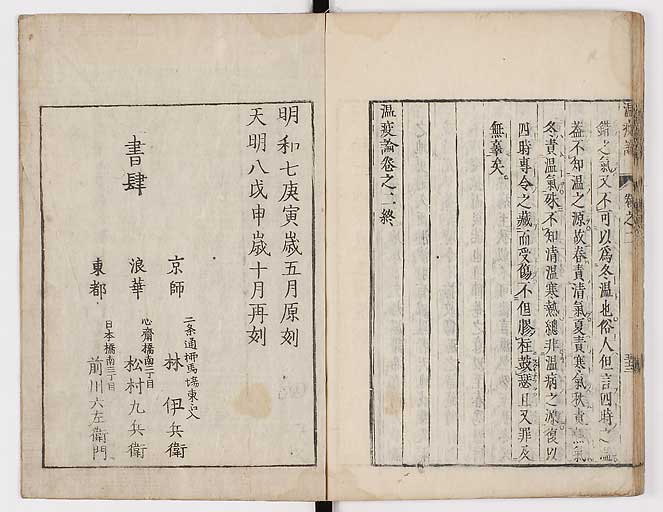 錯之氣又不可以爲冬溫也俗人但言四時之溫
葢不知溫之源故春責清氣夏責寒氣秋責熱氣
冬責溫氣殊不知清溫寒熱總非溫病之源復以
四時專令之藏而受傷不但膠柱鼓瑟且又罪及
無辜矣
温疫論卷之二終
明和七庚寅歲五月原刻
天明八戊申歲十月再刻
書肆
京師
二条通柳馬場東エ入
林伊兵衛
浪華
心齋橋南二丁目
松村九兵衛
東都
日本橋南三丁目
前川六左衛門